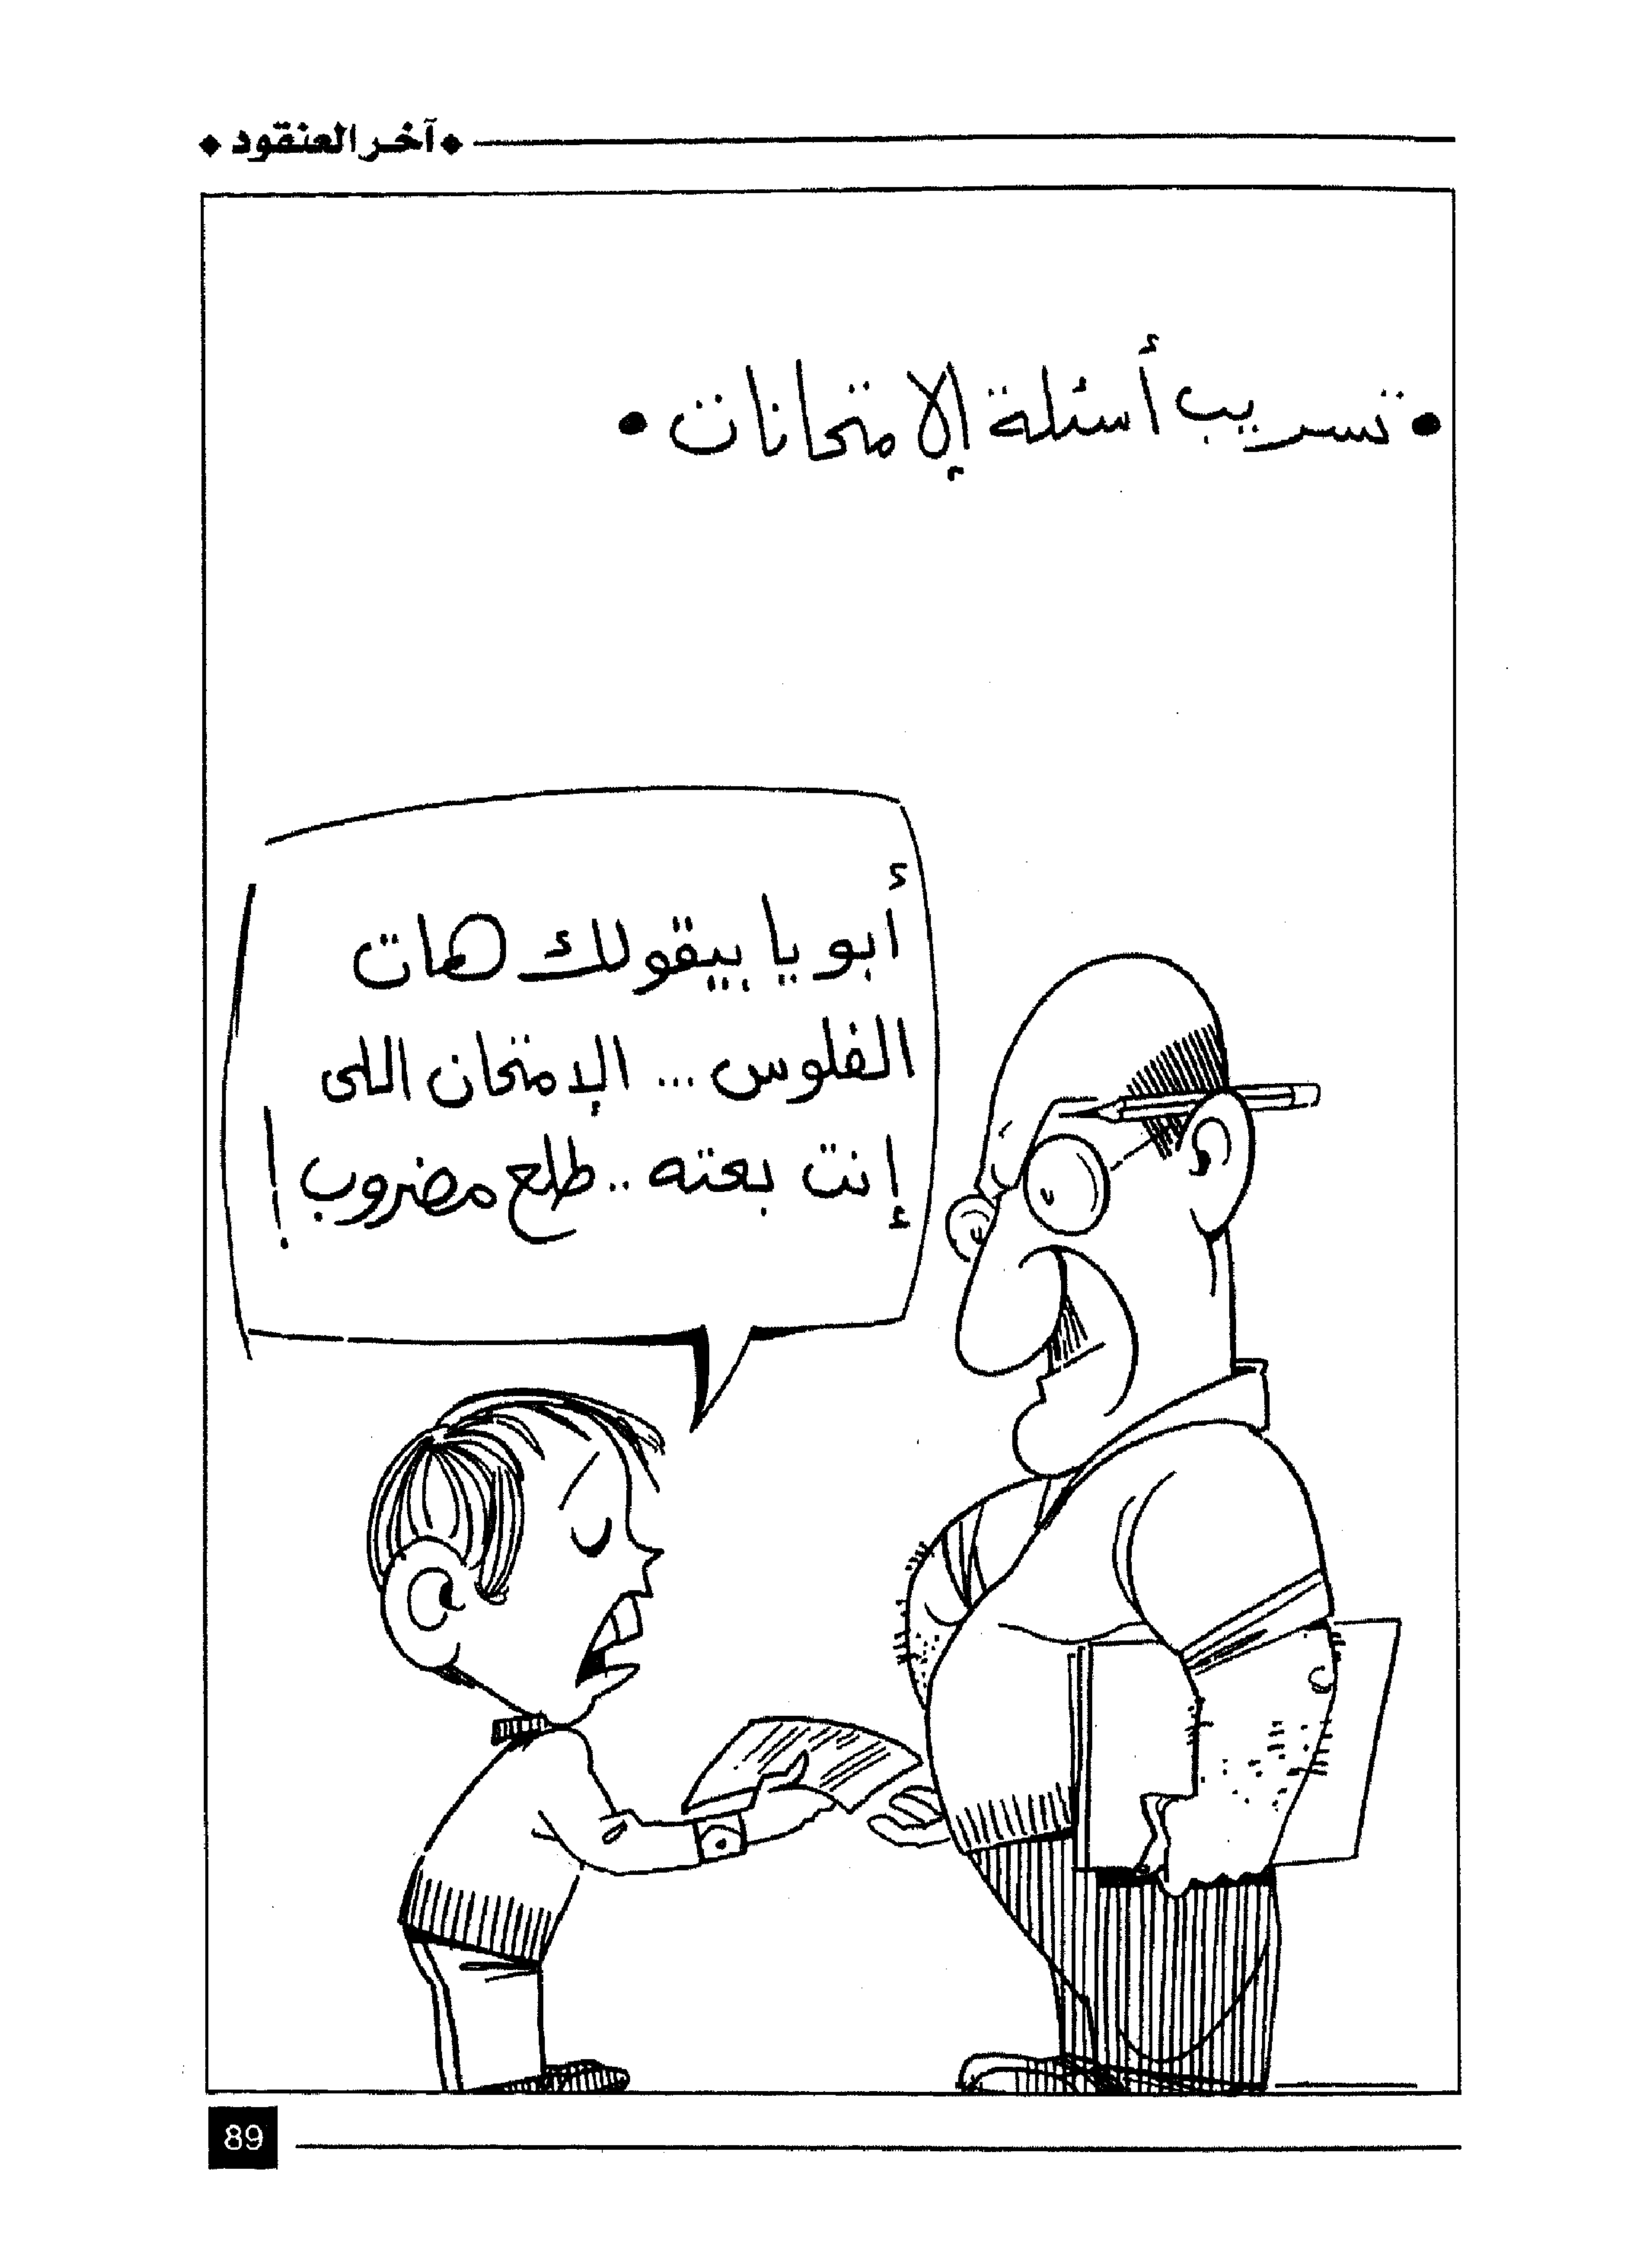 آخر العنقود
• تسريب أسئلة الإمتحانات •
أبويا بيقولك هات
الفلوس ... الإمتحان اللى
إنت بعته .. طلع مضروب !
89